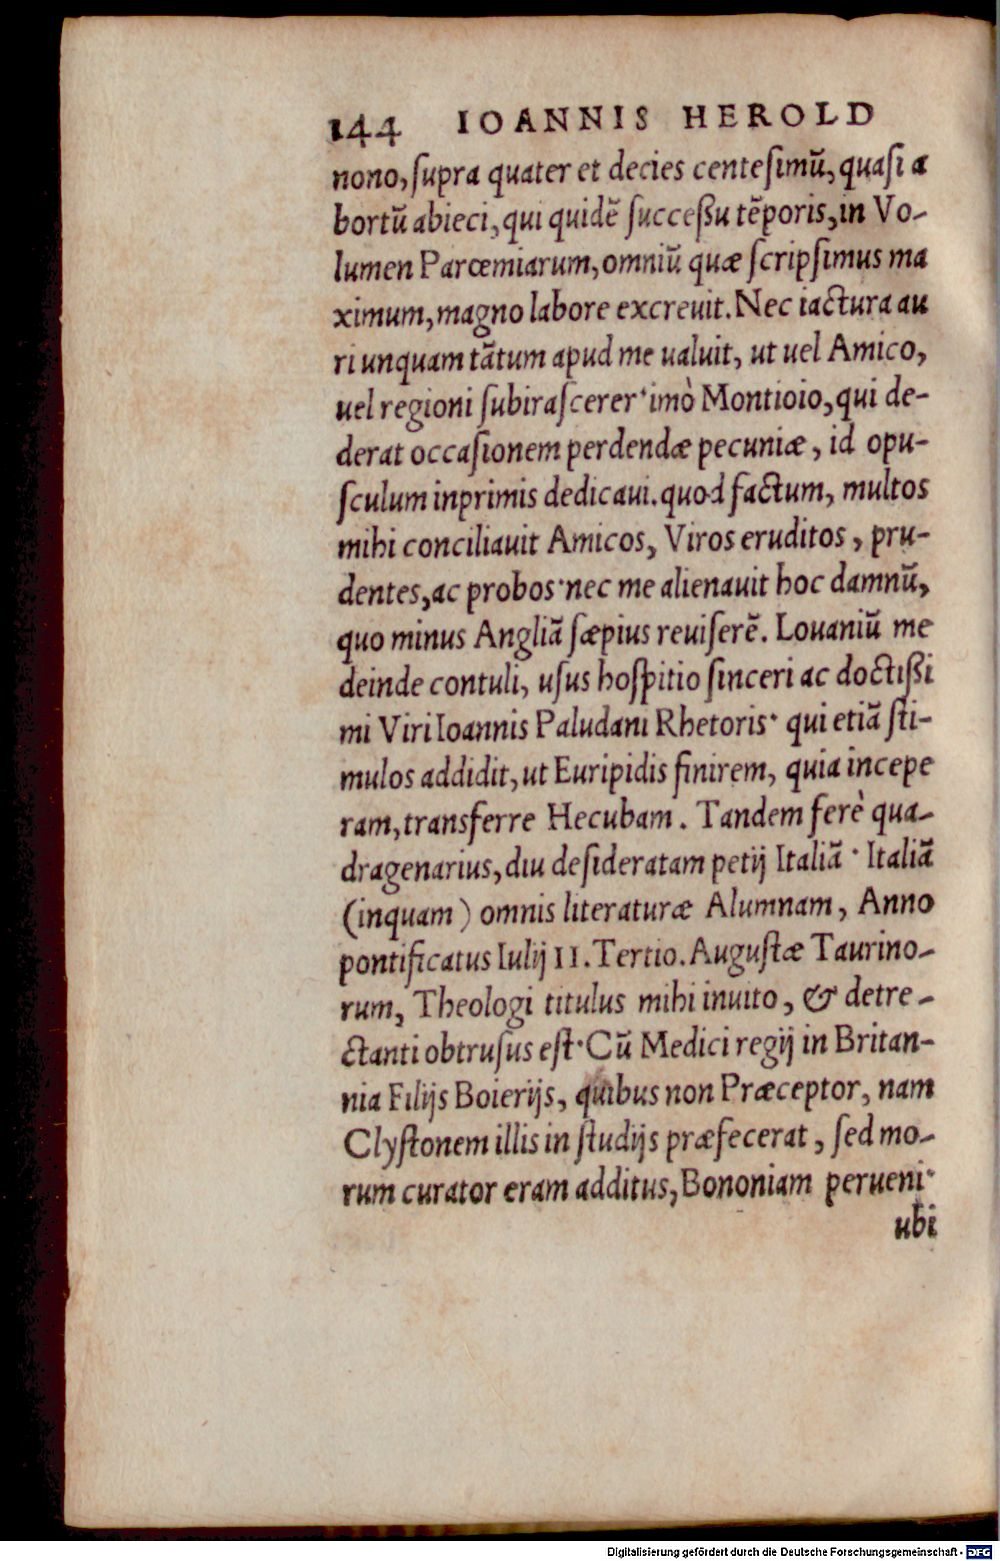 144 IOANNIS HEROLD
nono, ſupra quater et decies centeſimũ, quaſi a
bortũ abieci, qui quidẽ ſucceßu tẽporis, in Vo-
lumen Parœmiarum, omniũ quæ ſcripſimus ma
ximum, magno labore excreuit. Nec iactura au
ri unquam tãtum apud me ualuit, ut uel Amico,
uel regioni ſubiraſcerer· imò Montioio, qui de-
derat occaſionem perdendæ pecuniæ, id opu-
ſculum inprimis dedicaui. quod factum, multos
mihi conciliauit Amicos, Viros eruditos, pru-
dentes, ac probos· nec me alienauit hoc damnũ,
quo minus Angliã ſæpius reuiſerẽ. Louaniũ me
deinde contuli, uſus hoſpitio ſinceri ac doctißi
mi Viri Ioannis Paludani Rhetoris· qui etiã ſti-
mulos addidit, ut Euripidis finirem, quia incepe
ram, transferre Hecubam. Tandem ferè qua-
dragenarius, diu deſideratam petij Italiã · Italiã
(inquam) omnis literaturæ Alumnam, Anno
pontificatus Iulij II. Tertio. Auguſtæ Taurino-
rum, Theologi titulus mihi inuito, & detre-
ctanti obtruſus eſt· Cũ Medici regij in Britan-
nia Filijs Boierijs, quibus non Præceptor, nam
Clyſtonem illis in ſtudijs præfecerat, ſed mo-
rum curator eram additus, Bononiam perueni·
ubi
Digitalisierung gefördert durch die Deutsche Forschungsgemeinschaft - DFG